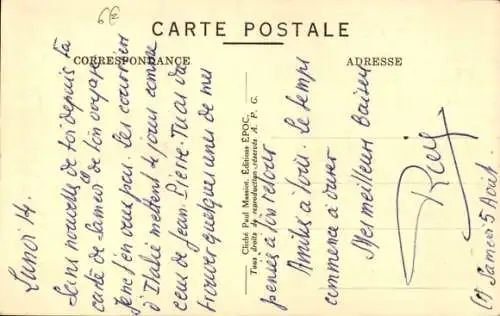 6€
CARTE POSTALE
CORRESPONDANCE
ADRESSE
Lundi 14.
Sans nouvelle de toi depuis ta
carte de Samedi de ton voyage
je ne t'en veux pas. Les courriers
d'Italie mettent 4 jours comme
ceux de Jean-Pierre. Tu as du
trouver quelques unes de mes
pensées à ton retour
Amitiés à tous. Le temps
commence à durer
Mes meilleurs Baisers
(1) Samedi 5 Août
Cliché Paul Massiot, Éditions ÉPOC,
Tous droits de reproduction réservés A. P. G.